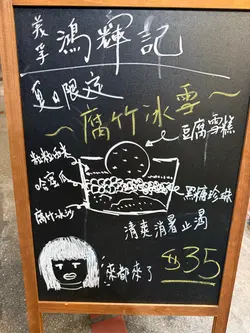 美孚鴻輝記
夏日限定
~腐竹冰雪~
豆腐雪糕
哈蜜瓜
黑糖珍珠
腐竹冰沙
清爽消暑止渴
來都來了
$35